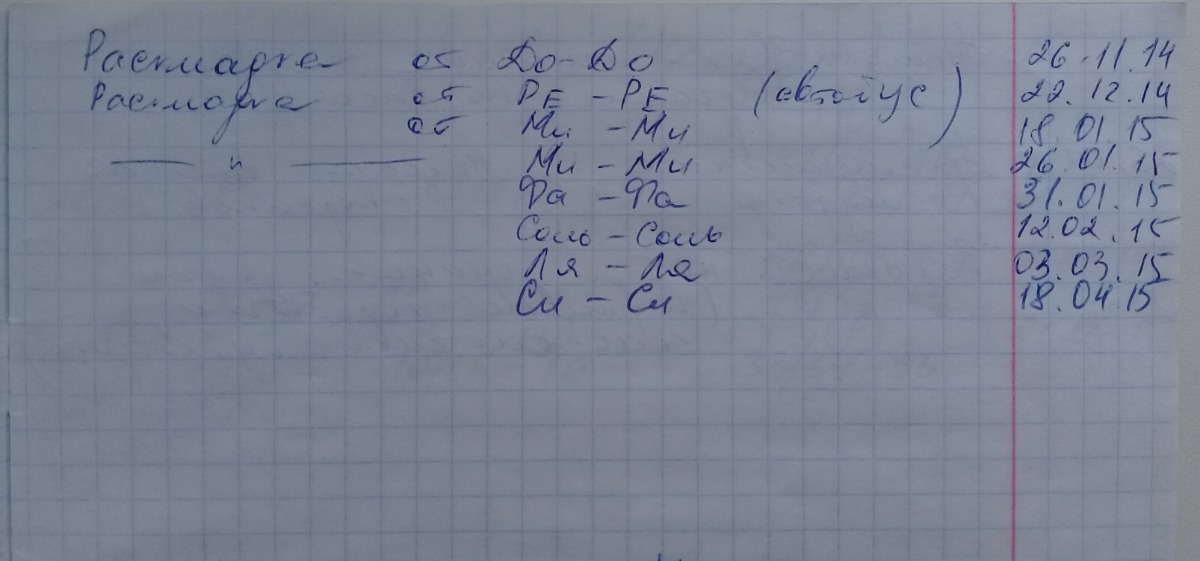 Распладка от До - До 26.11.14
Распладка от РЕ - РЕ (автобус) 22.12.14
от Ми - Ми 18.01.15
— " — Ми - Ми 26.01.15
Фа - Фа 31.01.15
Соль - Соль 12.02.15
Ля - Ля 03.03.15
Си - Си 18.04.15